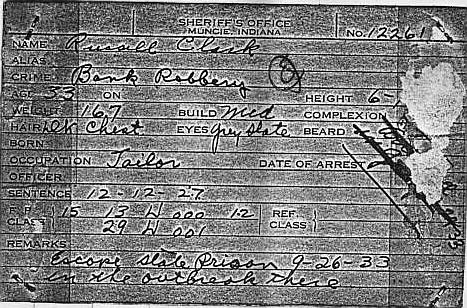 SHERIFF'S OFFICE
MUNCIE, INDIANA No. 12261
NAME Russell Clark
ALIAS
CRIME Bank Robbery
AGE 33 ON HEIGHT 6-
WEIGHT 167 BUILD Med COMPLEXION
HAIR Dk Chest EYES Grey Slate BEARD
BORN
OCCUPATION Tailor DATE OF ARREST
OFFICER
SENTENCE 12-12-27
F.P. CLASS 15 13 W 000 12 REF. CLASS
29 W 001
REMARKS
Escape State Prison 9-26-33
in the outbreak there